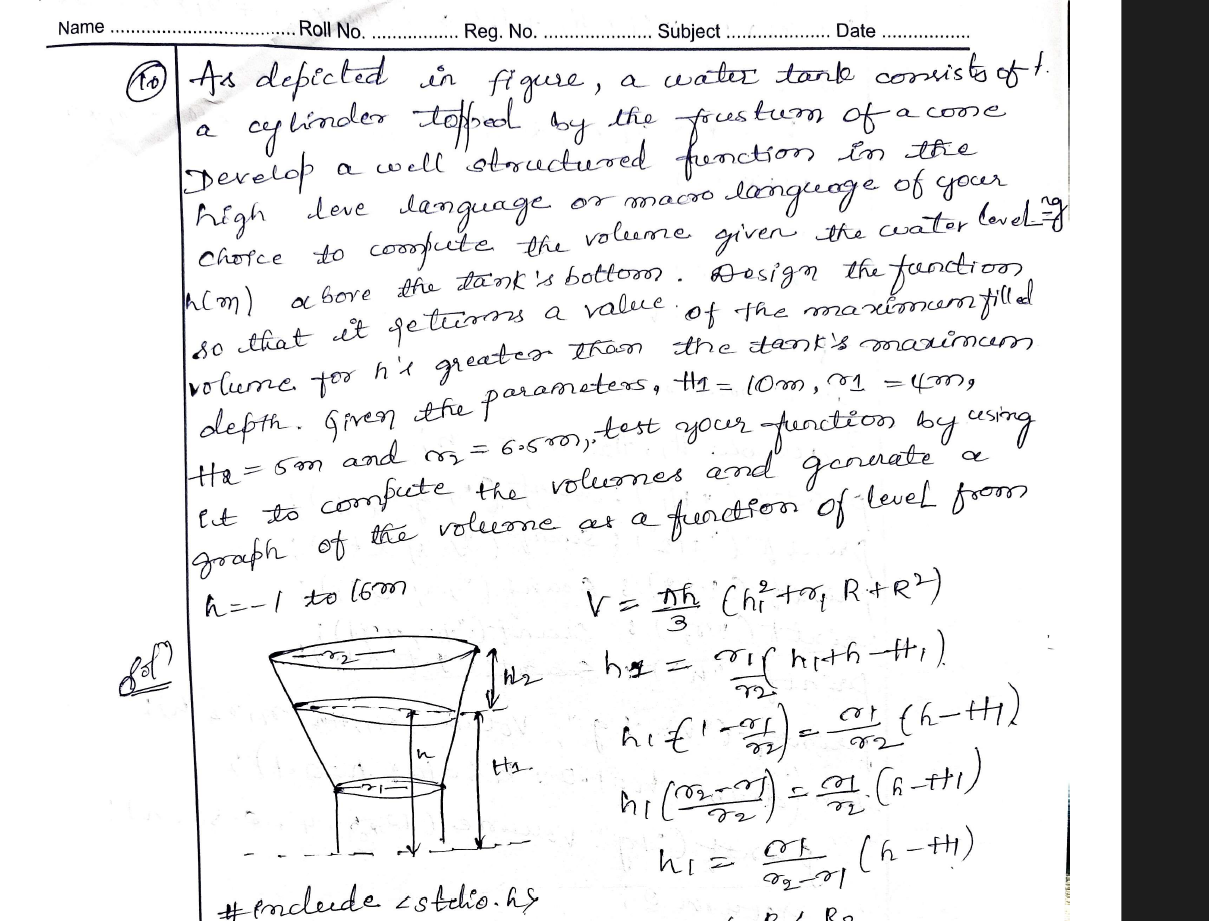 Name .................................. Roll No. ................ Reg. No. .................... Subject ................... Date ................
10 As depicted in figure, a water tank consists of
a cylinder topped by the frustum of a cone
Develop a well structured function in the
high leve language or macro language of your
choice to compute the volume given the water level
h(m) above the tank's bottom. Design the function
so that it returns a value of the maximum filled
volume for h's greater than the tank's maximum
depth. Given the parameters, H1 = 10m, r1 = 4m,
H2 = 5m and r2 = 6.5m, test your function by using
it to compute the volumes and generate a
graph of the volume as a function of level from
h = -1 to 16m
Solⁿ
V = πh/3 (h₁² + r₁ R + R²)
h1 = r1/r2 (h1 + h - H1)
h1 (1 - r1/r2) = r1/r2 (h - H1)
h1 (r2 - r1/r2) = r1/r2 . (h - H1)
h1 = r1/r2 - r1 (h - H1)
r2
H2
h
H1
r1
#include <stdio.h>